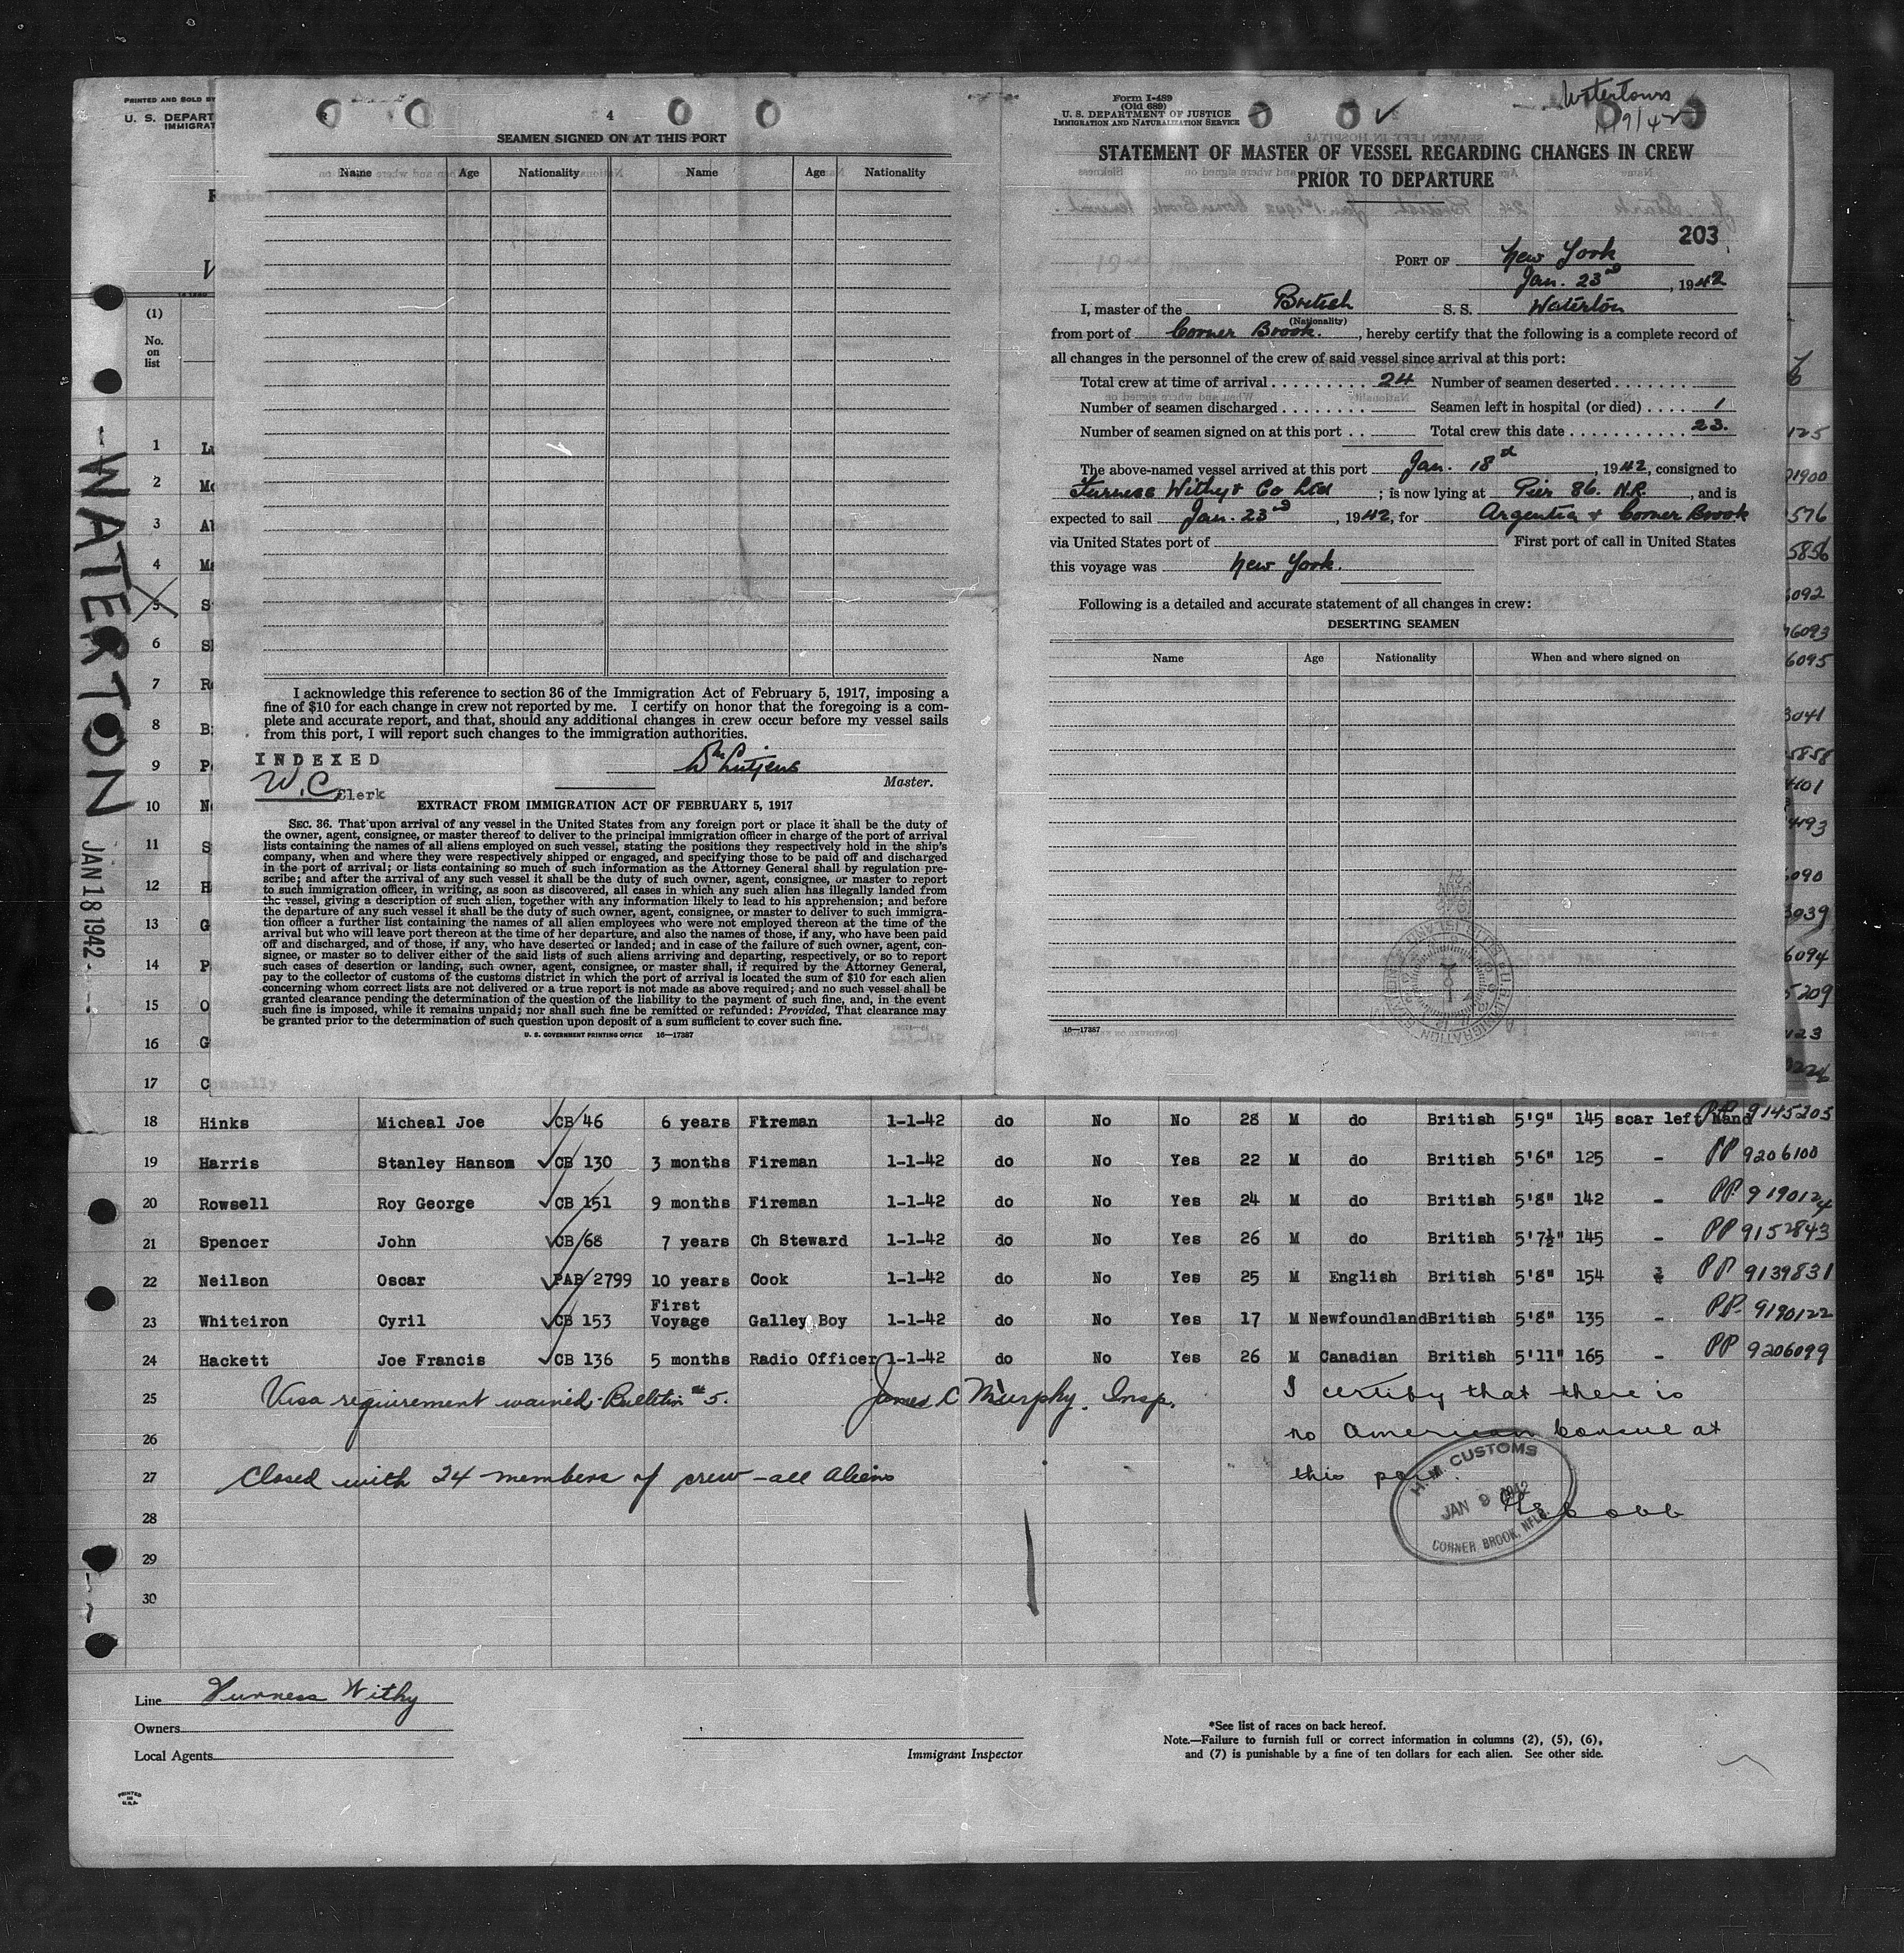 PRINTED AND SOLD BY
U. S. DEPART
IMMIGRAT
(1)
No.
on
list
WATERTON JAN 18 1942
4
SEAMEN SIGNED ON AT THIS PORT
Name Age Nationality Name Age Nationality
I acknowledge this reference to section 36 of the Immigration Act of February 5, 1917, imposing a
fine of $10 for each change in crew not reported by me. I certify on honor that the foregoing is a com-
plete and accurate report, and that, should any additional changes in crew occur before my vessel sails
from this port, I will report such changes to the immigration authorities.
INDEXED
W.C. Clerk
Master.
EXTRACT FROM IMMIGRATION ACT OF FEBRUARY 5, 1917
SEC. 36. That upon arrival of any vessel in the United States from any foreign port or place it shall be the duty of
the owner, agent, consignee, or master thereof to deliver to the principal immigration officer in charge of the port of arrival
lists containing the names of all aliens employed on such vessel, stating the positions they respectively hold in the ship's
company, when and where they were respectively shipped or engaged, and specifying those to be paid off and discharged
in the port of arrival; or lists containing so much of such information as the Attorney General shall by regulation pre-
scribe; and after the arrival of any such vessel it shall be the duty of such owner, agent, consignee, or master to report
to such immigration officer, in writing, as soon as discovered, all cases in which any such alien has illegally landed from
the vessel, giving a description of such alien, together with any information likely to lead to his apprehension; and before
the departure of any such vessel it shall be the duty of such owner, agent, consignee, or master to deliver to such immigra-
tion officer a further list containing the names of all alien employees who were not employed thereon at the time of the
arrival but who will leave port thereon at the time of her departure, and also the names of those, if any, who have been paid
off and discharged, and of those, if any, who have deserted or landed; and in case of the failure of such owner, agent, con-
signee, or master so to deliver either of the said lists of such aliens arriving and departing, respectively, or so to report
such cases of desertion or landing, such owner, agent, consignee, or master shall, if required by the Attorney General,
pay to the collector of customs of the customs district in which the port of arrival is located the sum of $10 for each alien
concerning whom correct lists are not delivered or a true report is not made as above required; and no such vessel shall be
granted clearance pending the determination of the question of the liability to the payment of such fine, and, in the event
such fine is imposed, while it remains unpaid; nor shall such fine be remitted or refunded: Provided, That clearance may
be granted prior to the determination of such question upon deposit of a sum sufficient to cover such fine.
U. S. GOVERNMENT PRINTING OFFICE 16—17387
Form I-489
(Old 689)
U. S. DEPARTMENT OF JUSTICE
IMMIGRATION AND NATURALIZATION SERVICE
STATEMENT OF MASTER OF VESSEL REGARDING CHANGES IN CREW
PRIOR TO DEPARTURE
203
PORT OF New York
Jan. 23rd, 1942
I, master of the British S. S. Waterton
(Nationality)
from port of Corner Brook., hereby certify that the following is a complete record of
all changes in the personnel of the crew of said vessel since arrival at this port:
Total crew at time of arrival 24 Number of seamen deserted
Number of seamen discharged Seamen left in hospital (or died) 1
Number of seamen signed on at this port Total crew this date 23.
The above-named vessel arrived at this port Jan. 18d, 1942, consigned to
Furness Withy & Co Ltd; is now lying at Pier 86. N.R., and is
expected to sail Jan. 23rd, 1942, for Argentia & Corner Brook
via United States port of First port of call in United States
this voyage was New York.
Following is a detailed and accurate statement of all changes in crew:
DESERTING SEAMEN
Name Age Nationality When and where signed on
16—17387
1
2
3
4
5
6
7
8
9
10
11
12
13
14
15
16
17
18 Hinks Micheal Joe CB 46 6 years Fireman 1-1-42 do No No 28 M do British 5'9" 145 scar left hand PP 9145205
19 Harris Stanley Hansom CB 130 3 months Fireman 1-1-42 do No Yes 22 M do British 5'6" 125 - PP 9206100
20 Rowsell Roy George CB 151 9 months Fireman 1-1-42 do No Yes 24 M do British 5'8" 142 - PP 9190124
21 Spencer John CB 68 7 years Ch Steward 1-1-42 do No Yes 26 M do British 5'7½" 145 - PP 9152843
22 Neilson Oscar PAB 2799 10 years Cook 1-1-42 do No Yes 25 M English British 5'8" 154 PP 9139831
23 Whiteiron Cyril CB 153 First Voyage Galley Boy 1-1-42 do No Yes 17 M Newfoundland British 5'8" 135 - PP 9190122
24 Hackett Joe Francis CB 136 5 months Radio Officer 1-1-42 do No Yes 26 M Canadian British 5'11" 165 - PP 9206099
25 Visa requirement waived - Bulletin #5. James C Murphy. Insp. I certify that there is
26 no American Consul at
27 Closed with 24 members of crew - all aliens this port.
28
29
30
H. M. CUSTOMS
JAN 9 1942
CORNER BROOK, NFLD.
Line Furness Withy
Owners
Local Agents
Immigrant Inspector
*See list of races on back hereof.
Note.—Failure to furnish full or correct information in columns (2), (5), (6),
and (7) is punishable by a fine of ten dollars for each alien. See other side.
PRINTED
IN
U.S.A.